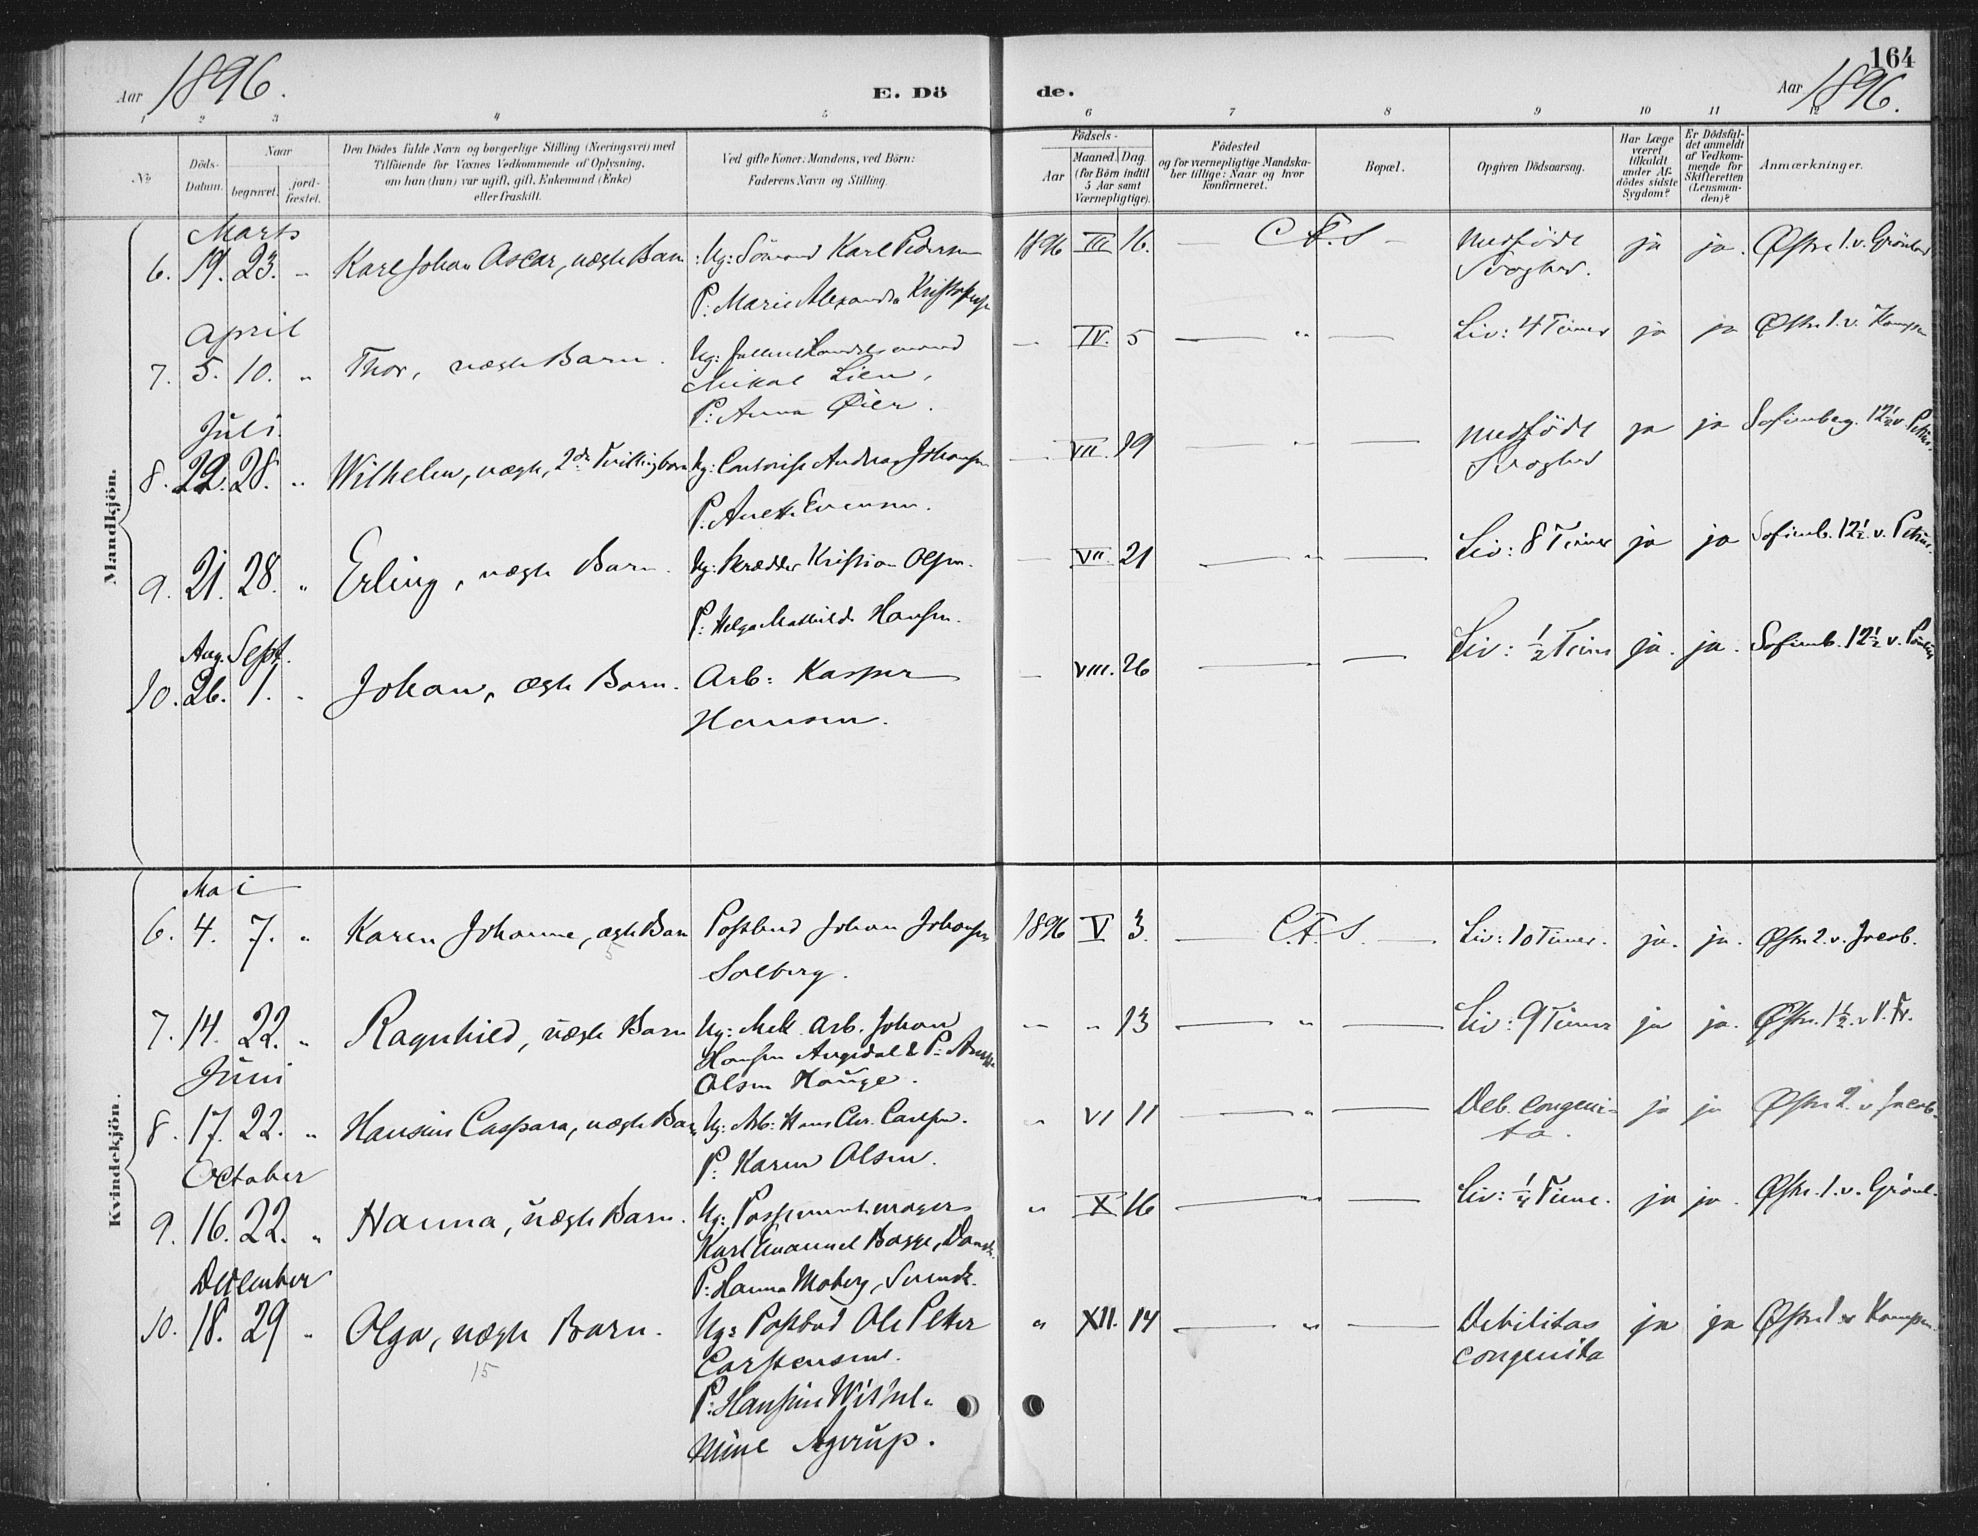 164
Aar 1896.
E. Dö
de.
Aar 1896.
1 2 3 4 5 6 7 8 9 10 11 12
No
Döds-
Datum.
Naar
begravet.
jord-
fæstet.
Den Dödes fulde Navn og borgerlige Stilling (Næringsvei) med
Tilföiende for Voxnes Vedkommende af Oplysning,
om han (hun) var ugift, gift, Enkemand (Enke)
eller fraskilt.
Ved gifte Koner: Mandens, ved Börn:
Faderens Navn og Stilling.
Födsels-
Aar
Maaned. Dag.
(for Börn indtil
5 Aar samt
Værnepligtige).
Födested
og for værnepligtige Mandska-
ber tillige: Naar og hvor
konfirmeret.
Bopæl.
Opgiven Dödsaarsag.
Har Læge
været
tilkaldt
under Af-
dödes sidste
Sygdom?
Er Dödsfal-
det anmeldt
af Vedkom-
mende for
Skifteretten
(Lensman-
den)?
Anmærkninger.
Mandkjön.
Marts
6. 19. 23. " Karl Johan Oscar, uægte Barn Ug: Sömand Karl Pedersen 1896 III 16. — C.F.S — Medfödt ja ja. Østre 1. v. Grönland
P: Marie Alexandra Kristoffersen Svaghed.
April
7. 5. 10. " Thor, uægte Barn. Ug: — IV. 5 — " — Liv: 4 Timer ja ja Østre 1. v. Kampen
Mikal Lien,
P: Anna Øien.
Juli
8. 22. 28. " Wilhelm, uægte, 2de Tvillingbarn Ug: Contorist Andreas Johansen — VII. 19 — " — Medfödt ja ja Sofienberg. 12½ v. Petrus
P. Anette Evensen. Svaghed
9. 21. 28. " Erling, uægte Barn. Ug: Skrædder Kristian Olsen. — VII. 21 — " — Liv: 8 Timer ja ja Sofienb. 12½ v. Petrus.
P: Helga Mathilde Hansen.
Aug. Sept.
10. 26. 1. " Johan, ægte Barn. Arb: Kasper — VIII. 26 — — Liv: ½ Time ja. ja. Sofienb. 12½ v.
Hansen.
Kvindekjön.
Mai
6. 4. 7. " Karen Johanne, ægte Barn Postbud Johan Johansen 1896 V 3. — C.F.S. — Liv: 10 Timer. ja. ja. Østre 2. v. Jacob.
5 Solberg.
7. 14. 22. " Ragnhild, uægte Barn Ug: Mek. Arb. Johan — " 13 — " — Liv: 9 Timer ja ja. Østre. 1½. v.
Hansen & P:
Olsen Hauge.
Juni
8. 17. 22. " Hansine Caspara, uægte Barn Ug: Arb: Hans Chr. " VI 11 — " — Deb. congeni- ja ja Østre 2. v Jacob.
P: Karen Olsen. ta.
October
9. 16. 22. " Hanna, uægte Barn. Ug: Possementmager " X 16 — " — Liv: ¼ Time. ja ja. Østre. 1. v. Grönl.
Karl Emanuel Bagge, Dansk.
P: Hanna Moberg, Svensk.
December
10. 18. 29 " Olga, uægte Barn. Ug: Postbud Ole Peter " XII. 14 — " — Debilitas ja ja Østre 1 v Kampen.
15 Carstensen. congenita
P: Hansine Wilhel-
mine Agerup.